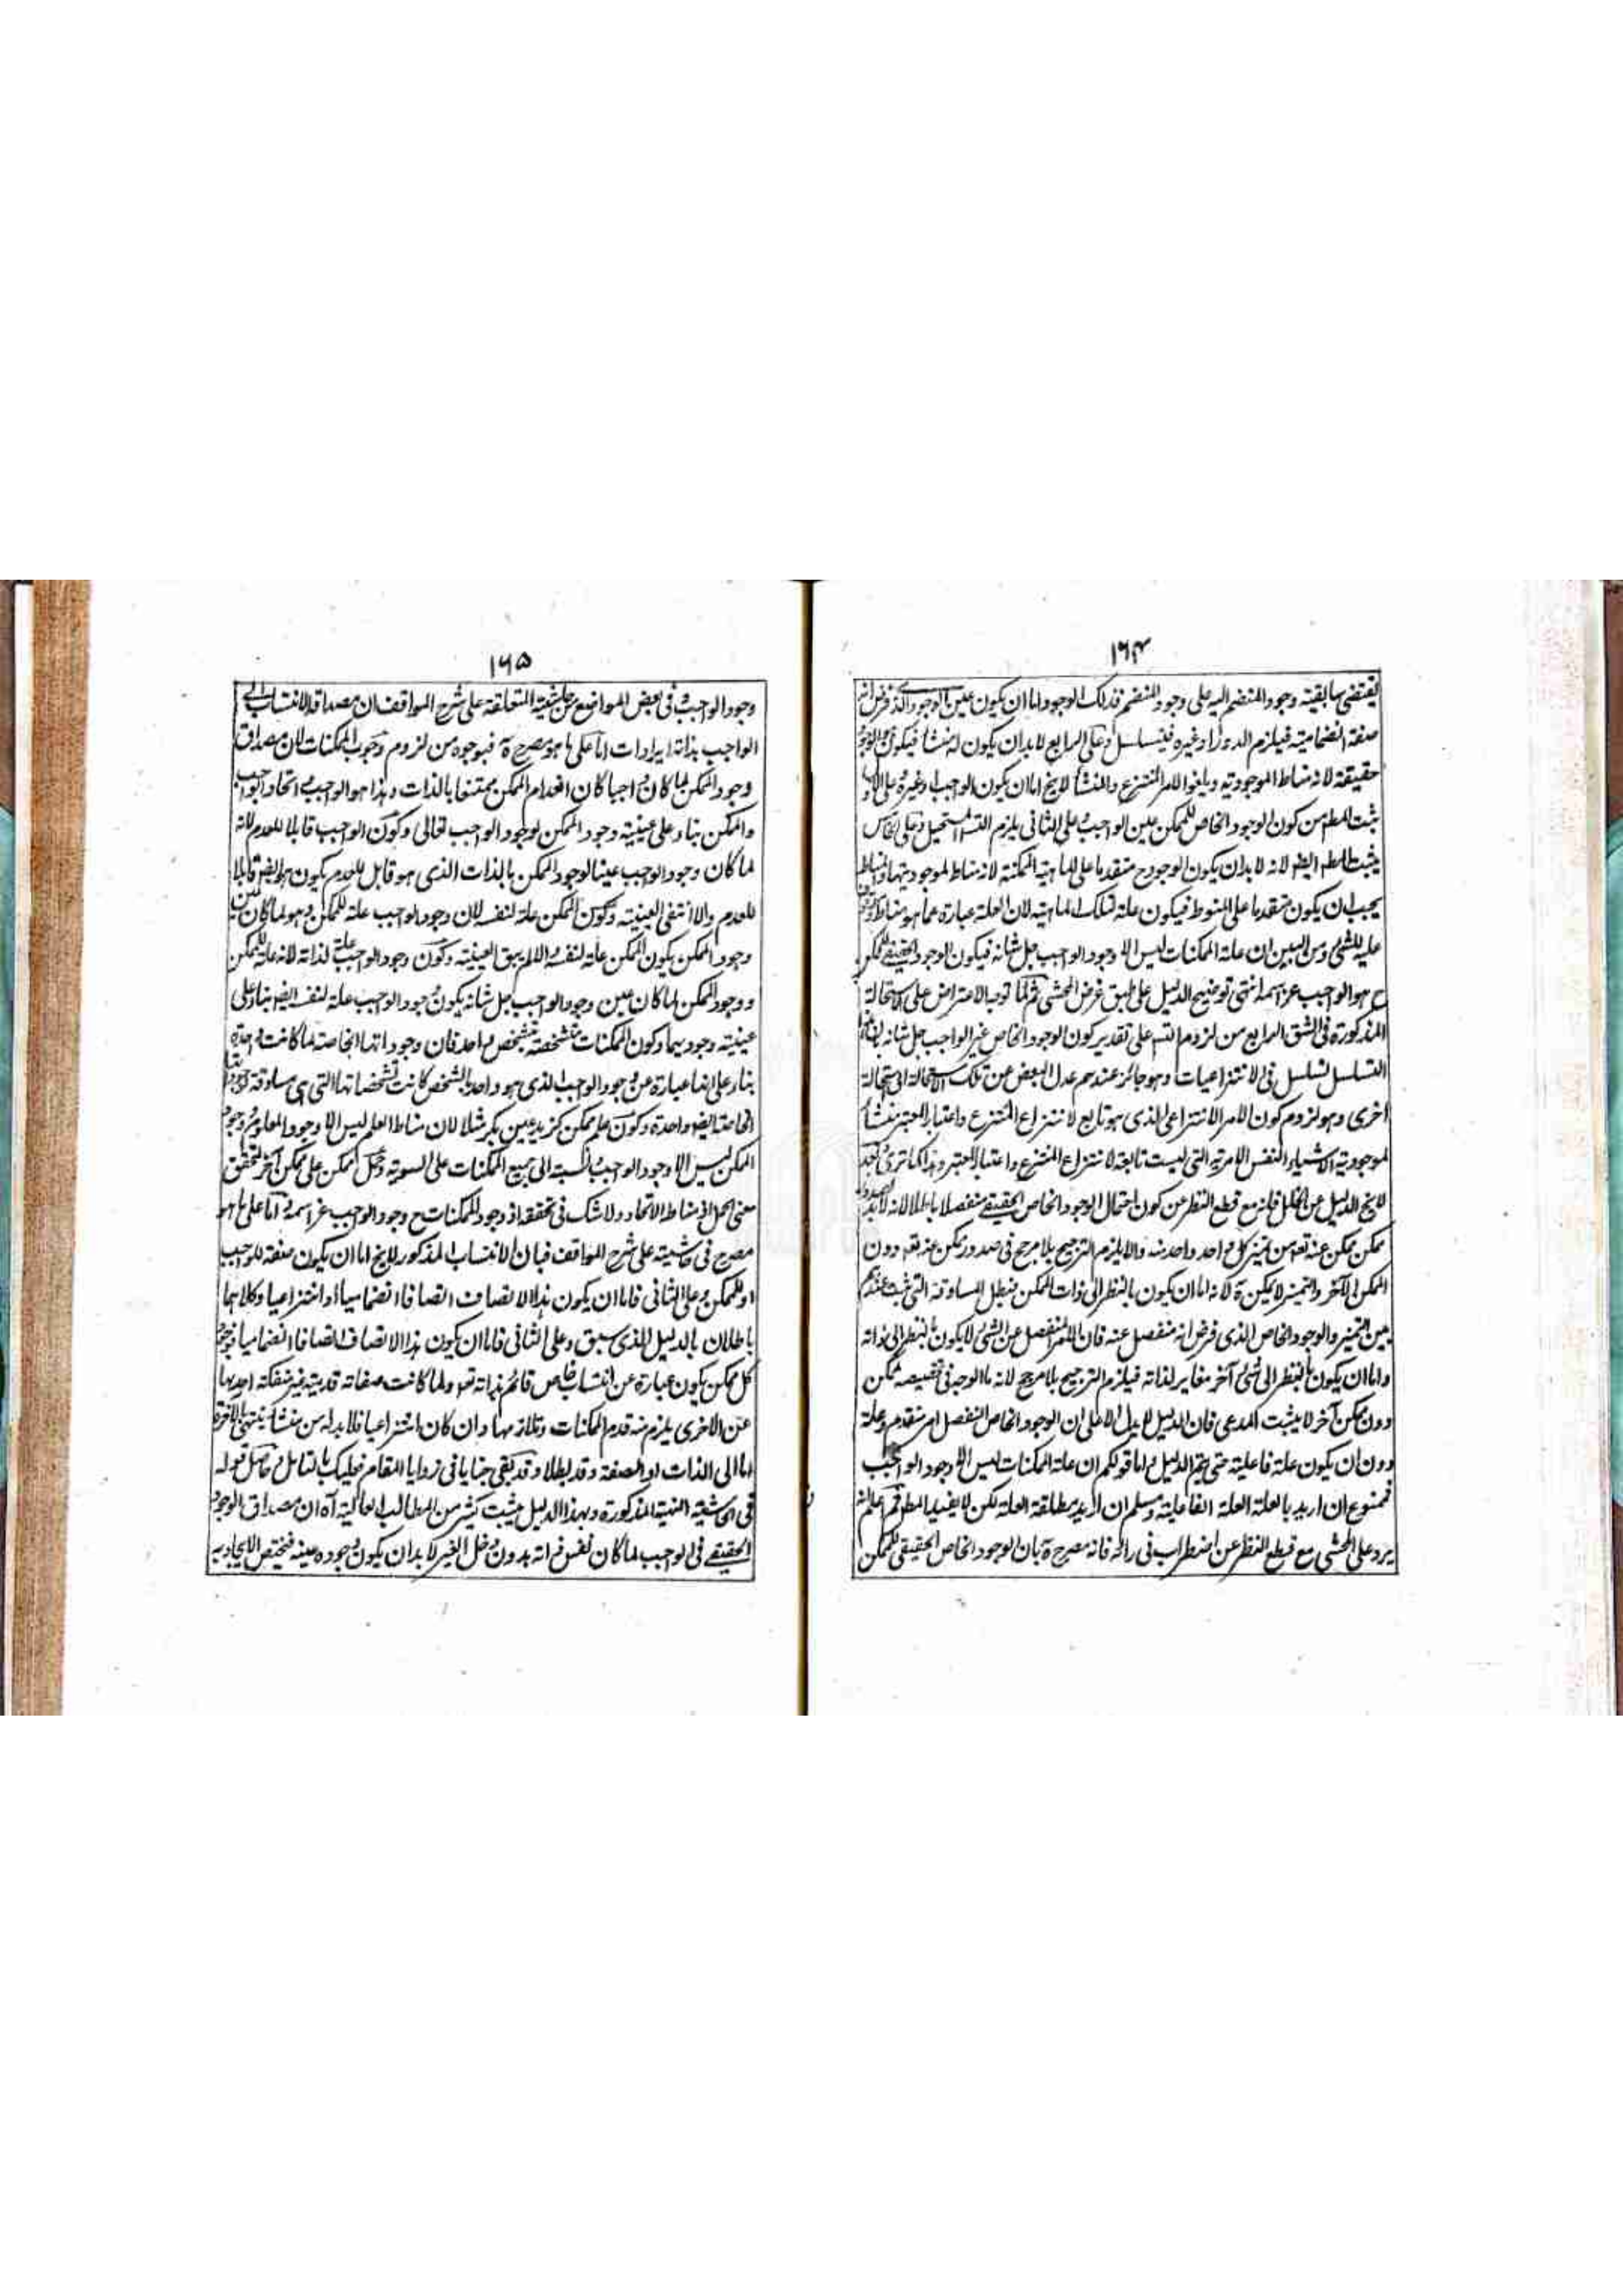 ۱۶۴
يقتضي سابقية وجود المنضم اليه على وجود المنضم فذلك الوجود اما ان يكون عين الوجود الذي فرض انه
صفة انضمامية فيلزم الدور او غيره فيتسلسل وعلى الرابع لا بد ان يكون له منشأ فيكون هو الوجود
حقيقة لانه مناط الموجودية ويلغو الامر المنتزع والمنشأ لايخ اما ان يكون الواجب او غيره على الاول
يثبت المطم من كون الوجود الخاص للممكن عين الواجب وعلى الثاني يلزم التسم المستحيل وعلى الخامس
يثبت المطم ايضم لانه لا بدان يكون الوجود ح متقدما على الماهية الممكنة لانه مناط لموجوديتها والمناط
يجب ان يكون متقدما على المنوط فيكون علة لتلك الماهية لان العلة عبارة عما هو مناط
عليه للشئ ومن البين ان علة الممكنات ليس الا وجود الواجب جل شانه فيكون الوجود الحقيقي للممكن
ح هو الواجب عز اسمه انتهى توضيح الدليل على طبق غرض المحشي ثم لما توجه الاعتراض على الاستحالة
المذكورة في الشق الرابع من لزوم التسم على تقدير كون الوجود الخاص غير الواجب جل شانه بان هذا
التسلسل تسلسل في الانتزاعيات وهو جائز عندهم عدل البعض عن تلك الاستحالة الى استحالة
اخرى وهو لزوم كون الامر الانتزاعي الذي هو تابع لانتزاع المنتزع واعتبار المعتبر منشأ
لموجودية الاشياء النفس الامرية التي ليست تابعة لانتزاع المنتزع واعتبار المعتبر وهذا كما ترى بعد
لايخ الدليل عن الخلل فانه مع قطع النظر عن كون احتمال الوجود الخاص الحقيقي منفصلا باطلا لانه لابد
ممكن ممكن عنه تعم من تميز كل واحد واحد منه والا يلزم الترجيح بلا مرجح في صدور ممكن عنه تعم دون
الممكن الآخر والتميز لا يمكن ة لانه اما ان يكون بالنظر الى ذات الممكن فبطل المساوقة التي ثبت عندهم
بين التميز والوجود الخاص الذي فرض انه منفصل عنه فان الامر المنفصل عن الشئ لا يكون بالنظر الى ذاته
واما ان يكون بالنظر الى شئ آخر مغاير لذاته فيلزم الترجيح بلا مرجح لانه ما الوجه في تخصيصه ممكن
دون ممكن آخر لا يثبت المدعى فان الدليل لا يدل الا على ان الوجود الخاص المنفصل امر متقدم وعلة
دون ان يكون علة فاعلية حتى يتم الدليل واما قولكم ان علة الممكنات ليس الا وجود الواجب
فممنوع ان اريد بالعلة العلة الفاعلية ومسلم ان اريد مطلقة العلة لكن لا يفيد المطم ثم اعلم انه
يرد على المحشي مع قطع النظر عن اضطراب في رائه فانه مصرح ة بان الوجود الخاص الحقيقي للممكن
۱۶۵
وجود الواجب وفي بعض المواضع من حاشيته المتعلقة على شرح المواقف ان مصداقه الانتساب الى
الواجب بذاته ايرادات اما على ما هو مصرح ة فبوجوه من لزوم وجوب الممكنات لان مصداق
وجود الممكن لما كان واجبا كان انعدام الممكن ممتنعا بالذات وهذا هو الواجب واتحاد الواجب
والممكن بناء على عينية وجود الممكن لوجود الواجب تعالى وكون الواجب قابلا للعدم لانه
لما كان وجود الواجب عينا لوجود الممكن بالذات الذي هو قابل للعدم يكون هو ايضم قابلا
للعدم والا انتفى العينية وكون الممكن علة لنفسه لان وجود الواجب علة للممكن وهو لما كان عين
وجود الممكن يكون الممكن علة لنفسه والا لم يبق العينية وكون وجود الواجب علة لذاته لانه علة للممكن
ووجود الممكن لما كان عين وجود الواجب جل شانه يكون وجود الواجب علة لنفسه ايضم بناء على
عينية وجوديهما وكون الممكنات متشخصة بتشخص واحد فان وجوداتها الخاصة لما كانت واحدة
بناء على انها عبارة عن وجود الواجب الذي هو واحد بالشخص كانت تشخصاتها التي هي مساوقة
الخاصة ايضم واحدة وكون علم ممكن كزيد عين بكر مثلا لان مناط العلم ليس الا وجود المعلوم ووجود
الممكن ليس الا وجود الواجب والنسبة الى جميع الممكنات على السوية وحمل ممكن على ممكن آخر لتحقق
معنى الحمل اذ مناطه الاتحاد ولا شك في تحققه اذ وجود الممكنات ح وجود الواجب عز اسمه واما على ما هو
مصرح في حاشيته على شرح المواقف فبان الانتساب المذكور لايخ اما ان يكون صفة للواجب
او للممكن وعلى الثاني فاما ان يكون هذا الاتصاف اتصافا انضماميا أو انتزاعيا وكلاهما
باطلان بالدليل الذي سبق وعلى الثاني فاما ان يكون هذا الاتصاف اتصافا انضماميا فوجود
كل ممكن يكون عبارة عن انتساب خاص قائم بذاته تعم ولما كانت صفاته قديمة غير منفكة احدها
عن الاخرى يلزم منه قدم الممكنات وتلازمها وان كان انتزاعيا فلا بد له من منشأ ينتهي بالاخرة
اما الى الذات او الصفة وقد بطلا وقد بقي خبايا في زوايا المقام فعليك بالتامل وحاصل قوله
في الحاشية المنهية المذكورة وبهذا الدليل يثبت كثير من المطالب العالية آه ان مصداق الوجود
الحقيقي في الواجب لما كان نفس ذاته بدون دخل الغير لا بد ان يكون وجوده عينه فتختص الايجاد به